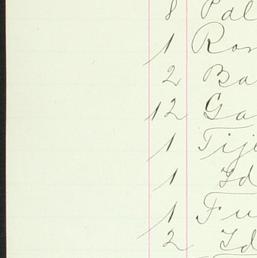 8 Pal
1 Ron
2 Ba
12 Ga
1 Tije
1 Id
1 Fu
2 Id